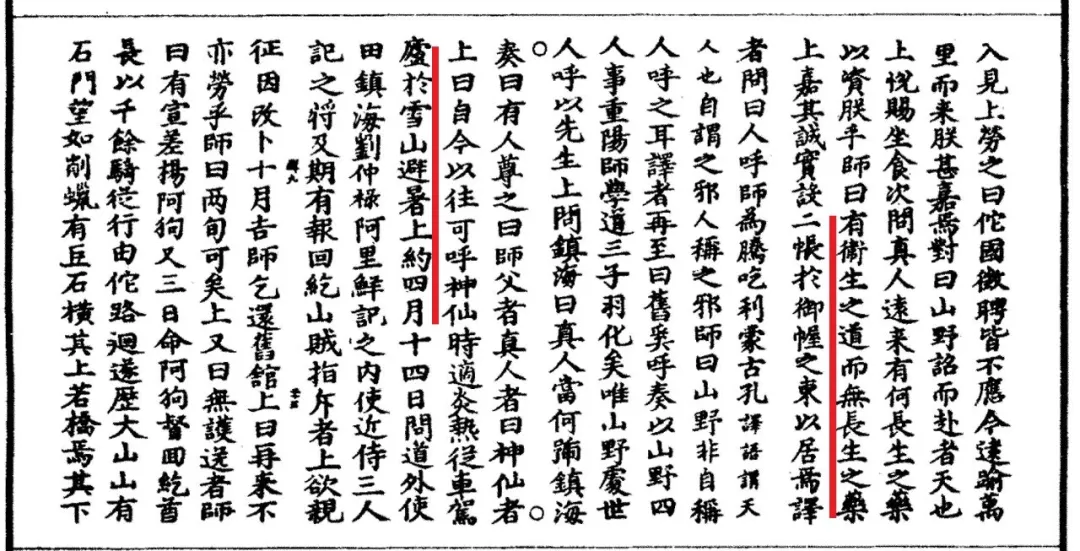 入見上勞之曰佗國徵聘皆不應今遠踰萬
里而来朕甚嘉焉對曰山野詔而赴者天也
上悅賜坐食次問真人遠来有何長生之藥
以資朕乎師曰有衛生之道而無長生之藥
上嘉其誠實設二帳於御幄之東以居焉譯
者問曰人呼師為騰吃利蒙古孔譯語謂天
人也自謂之邪人稱之邪師曰山野非自稱
人呼之耳譯者再至曰舊奚呼奏以山野四
人事重陽師學道三子羽化矣唯山野處世
人呼以先生上問鎮海曰真人當何號鎮海
奏曰有人尊之曰師父者真人者曰神仙者
上曰自今以往可呼神仙時適炎熱從車駕
廬於雪山避暑上約四月十四日問道外使
田鎮海劉仲祿阿里鮮記之内使近侍三人
記之將及期有報回紇山賊指斥者上欲親
征因改卜十月吉師乞還舊舘上曰再来不
亦勞乎師曰两旬可矣上又曰無護送者師
曰有宣差楊阿狗又三日命阿狗督回紇酋
長以千餘騎從行由佗路迴遂歷大山山有
石門望如削蠟有巨石橫其上若橋焉其下